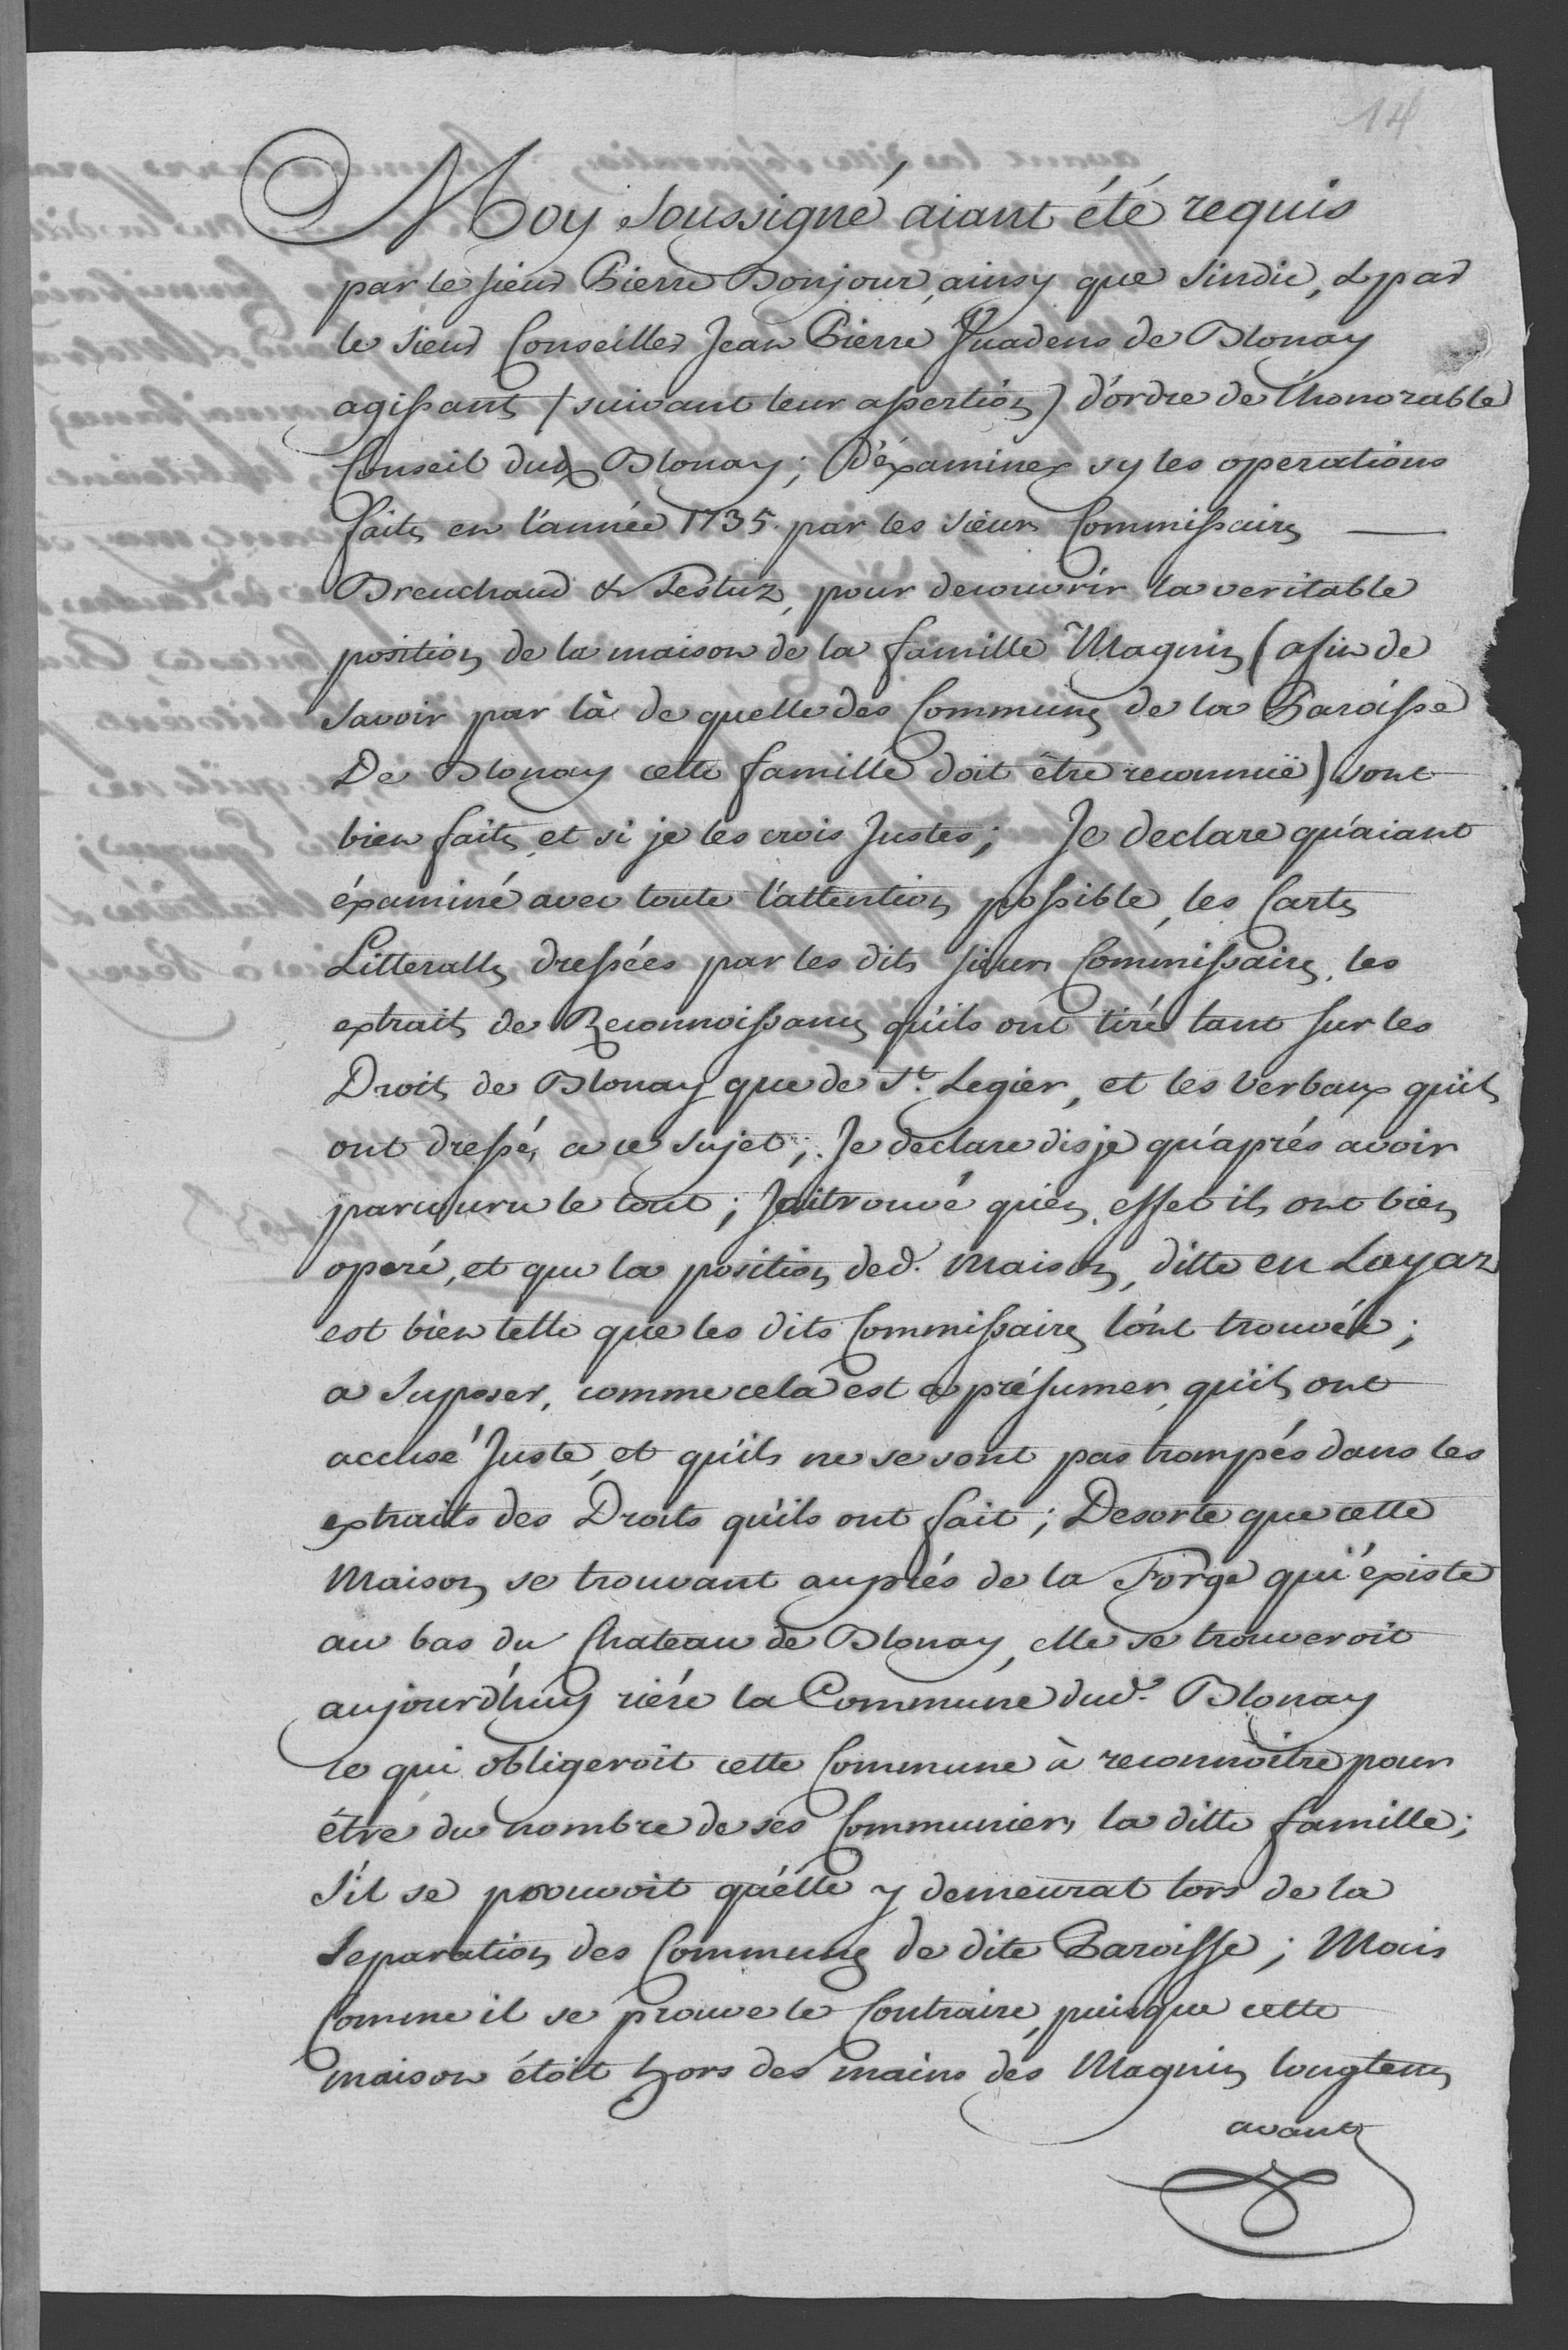 14
Moy soussigné aiant été requis
par le sieur Pierre Bonjour, ainsy que sindic, & par
le sieur Conseiller Jean Pierre de Blonay
agissants (suivant leur assertion) d'ordre de l'honorable
Conseil dud. Blonay; d'éxaminer sy les operations
faites en l'année 1735. par les sieurs Commissaires
Breuchaud & Testuz, pour decouvrir la veritable
position de la maison de la famille Magnin (afin de
savoir par là de quelle des Communes de la Paroisse
De Blonay cette famille doit être reconnuë) sont
bien faites et si je les crois Justes; Je declare qu'aiant
éxaminé avec toute l'attention possible, les Cartes
Litteralles dressées par les dits sieurs Commissaires, les
extraits de Reconnoissances qu'ils ont tiré tant sur les
Droits de Blonay que de St. Legier, et les Verbaux qu'ils
ont dressés a ce sujet; Je declare disje qu'aprés avoir
parcouru le tout; Jai trouvé qu'en effet ils ont bien
operé, et que la position de d. maison, ditte en Layaz
est bien telle que les dits Commissaires l'ont trouvée;
a suposer, comme cela est a présumer, qu'ils ont
accusé Juste, et qu'ils ne se sont pas trompés dans les
extraits des Droits qu'ils ont fait; Desorte que cette
Maison se trouvant auprés de la Forge qui éxiste
au bas du Chateau de Blonay, elle se trouveroit
aujourd'huy riére la Commune dud. Blonay
ce qui obligeroit cette Commune à reconnoitre pour
être du nombre de ses Communiers la ditte famille;
s'il se prouvoit qu'elle y demeurat lors de la
separation des Communes de dite Paroisse; Mais
Comme il se prouve le Contraire, puisque cette
maison étoit hors des mains des Magnin longtems
avant